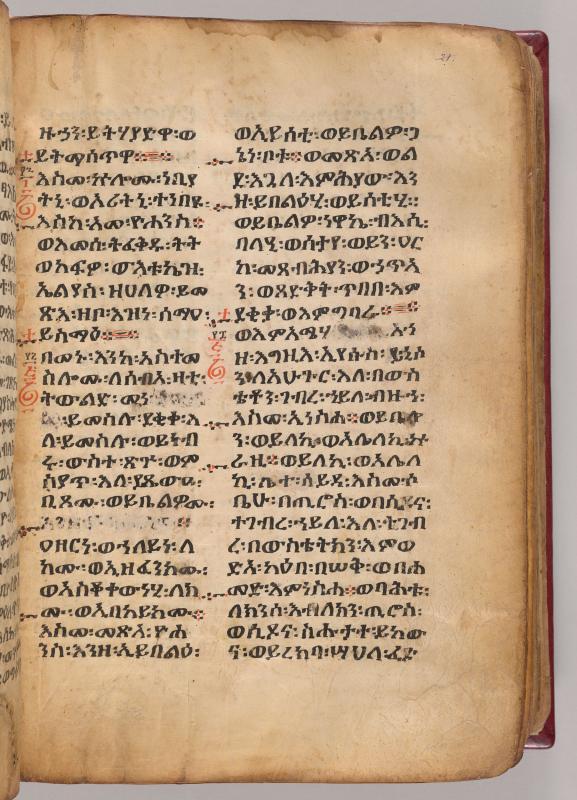 ዙኃን፡ይትሃያድዋ፡ወ
ይትማሰጥዋ።
እስመ፡ኵሎሙ፡ነቢያ
ትኒ፡ወኦሪትኒ፡ተንበዩ፡
እስከ፡አመ፡ዮሐንስ።
ወእመሰ፡ትፈቅዱ፡ትት
ወከፍዎ፡ውእቱኬዝ፡
ኤልያስ፡ዘሀለዎ፡ይመ
ጽእ፡ዘቦ፡እዝነ፡ሰማዕ፡
ይስማዕ።
በመኑ፡እንከ፡አስተመ
ስሎሙ፡ለሰብአ፡ዛቲ፡
ትውልድ፡
ይመስሉ፡ደቂቀ፡እ
ለ፡ይመስሉ፡ወይነብ
ሩ፡ውስተ፡ጽጕ፡ወም
ስያጥ፡እለ፡ይጼውዑ፡
ቢጾሙ፡ወይቤልዎሙ፡
ዐዘርነ፡ወኀለይነ፡ለ
ክሙ፡ወኢዘፈንክሙ፡
ወአስቆቀውነሂ፡ለክ
ሙ፡ወኢበከይክሙ።
እስመ፡መጽአ፡ዮሐ
ንስ፡እንዘ፡ኢይበልዕ፡
ወኢይሰቲ፡ወይቤልዎ፡ጋ
ኔነ፡ቦቱ።ወመጽአ፡ወል
ደ፡እጓለ፡እምሕያው፡እን
ዘ፡ይበልዕሂ፡ወይሰቲሂ።
ወይቤልዎ፡ነዋኬ፡ብእሲ፡
በላዒ፡ወሰታየ፡ወይን፡ዐር
ከ፡መጸብሐን፡ወኃጥአ
ን፡ወጸድቀት፡ጥበብ፡እም
ደቂቃ፡ወእምግባራ።
ወእምአሜሃ
ዘ፡እግዚእ፡ኢየሱስ፡
ን፡ለአህጉር፡እለ፡በውስ
ቴቶን፡ገብረ፡ኃይለ፡ብዙኀ፡
እስመ፡ኢነስሐ።ወይቤሎ
ን፡ወይለኪ፡ወአሌለኪ፡ኮ
ራዚ።ወይለኪ፡ወአሌለ
ኪ፡ቤተ፡ሳይዳ፡እስመሶ
ቤሁ፡በጢሮስ፡ወበሲዶና፡
ተገብረ፡ኀይል፡እለ፡ተገብ
ረ፡በውስቴትክን፡እምወ
ድአ፡ከዕበ፡በሠቅ፡ወበሐ
መድ፡እምነስሐ።ወባሕቱ፡
ለክንሰ፡እብለክን፡ጢሮስ፡
ወሲዶና፡ስሑታተ፡ይከው
ና፡ወይረክባ፡ሣህለ፡ፈድ